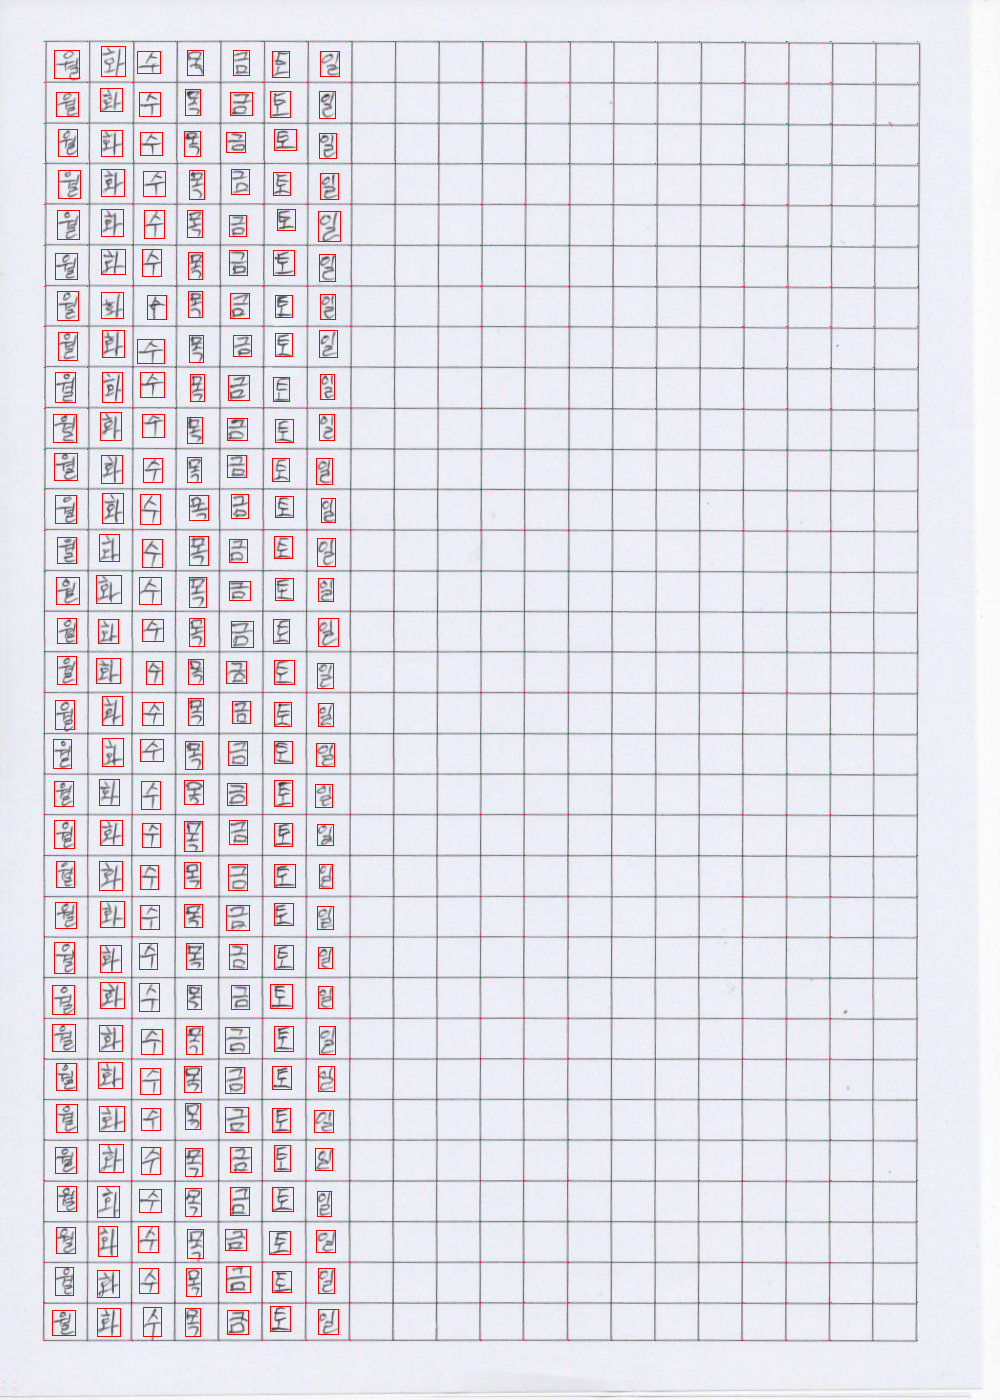 월 화 수 목 금 토 일
월 화 수 목 금 토 일
월 화 수 목 금 토 일
월 화 수 목 금 토 일
월 화 수 목 금 토 일
월 화 수 목 금 토 일
월 화 수 목 금 토 일
월 화 수 목 금 토 일
월 화 수 목 금 토 일
월 화 수 목 금 토 일
월 화 수 목 금 토 일
월 화 수 목 금 토 일
월 화 수 목 금 토 일
월 화 수 목 금 토 일
월 화 수 목 금 토 일
월 화 수 목 금 토 일
월 화 수 목 금 토 일
월 화 수 목 금 토 일
월 화 수 목 금 토 일
월 화 수 목 금 토 일
월 화 수 목 금 토 일
월 화 수 목 금 토 일
월 화 수 목 금 토 일
월 화 수 목 금 토 일
월 화 수 목 금 토 일
월 화 수 목 금 토 일
월 화 수 목 금 토 일
월 화 수 목 금 토 일
월 화 수 목 금 토 일
월 화 수 목 금 토 일
월 화 수 목 금 토 일
월 화 수 목 금 토 일